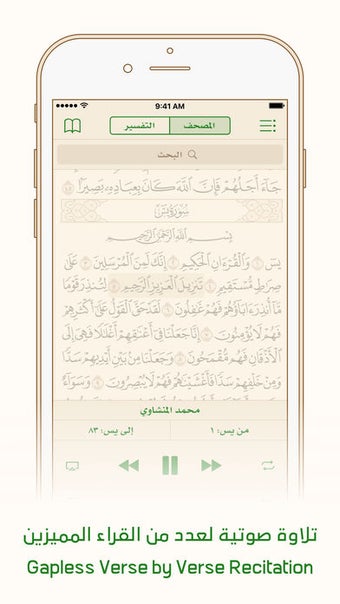 9:41 AM
المصحف التفسير
البحث
جَآءَ أَجَلُهُمْ فَإِنَّ ٱللَّهَ كَانَ بِعِبَادِهِۦ بَصِيرًا ٤٥
سُورَةُ يسٓ
بِسْمِ ٱللَّهِ ٱلرَّحْمَٰنِ ٱلرَّحِيمِ
يسٓ ١ وَٱلْقُرْءَانِ ٱلْحَكِيمِ ٢ إِنَّكَ لَمِنَ ٱلْمُرْسَلِينَ ٣ عَلَىٰ
صِرَٰطٍ مُّسْتَقِيمٍ ٤ تَنزِيلَ ٱلْعَزِيزِ ٱلرَّحِيمِ ٥ لِتُنذِرَ قَوْمًا
مَّآ أُنذِرَ ءَابَآؤُهُمْ فَهُمْ غَٰفِلُونَ ٦ لَقَدْ حَقَّ ٱلْقَوْلُ عَلَىٰٓ أَكْثَرِهِمْ
فَهُمْ لَا يُؤْمِنُونَ ٧ إِنَّا جَعَلْنَا فِىٓ أَعْنَٰقِهِمْ أَغْلَٰلًا فَهِىَ إِلَى
ٱلْأَذْقَانِ فَهُم مُّقْمَحُونَ ٨ وَجَعَلْنَا مِنۢ بَيْنِ أَيْدِيهِمْ سَدًّا
وَمِنْ خَلْفِهِمْ سَدًّا فَأَغْشَيْنَٰهُمْ فَهُمْ لَا يُبْصِرُونَ ٩ وَسَوَآءٌ
محمد المنشاوي
من يس: ١ إلى يس: ٨٣
تلاوة صوتية لعدد من القراء المميزين
Gapless Verse by Verse Recitation